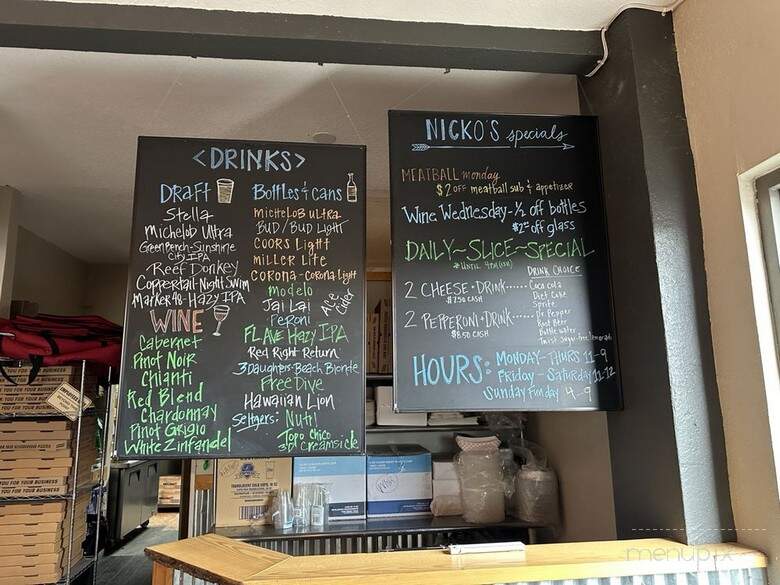 <DRINKS>
DRAFT
Stella
Michelob Ultra
Green Bench-Sunshine
City IPA
Reef Donkey
Coppertail Night Swim
Marker 48-Hazy IPA
WINE
Cabernet
Pinot Noir
Chianti
Red Blend
Chardonnay
Pinot Grigio
White Zinfandel
Bottles & cans
Michelob ultra
Bud/Bud Light
Coors Light
Miller Lite
Corona-Corona Light
Modelo
Jai Lai
Peroni
Ace
Cider
FLAVE Hazy IPA
Red Right Return
3 Daughters-Beach Blonde
Free Dive
Hawaiian Lion
Seltzers: Nutrl
Topo Chico
3D Creamsicle
NICKO'S specials
MEATBALL monday
$2 OFF meatball sub & appetizer
Wine Wednesday-½ off bottles
$2 off glass
DAILY~SLICE~SPECIAL
DRINK CHOICE
2 CHEESE+DRINK......
$7.50 CASH
2 PEPPERONI+DRINK......
$8.50 CASH
Coca cola
Diet Coke
Sprite
Dr. Pepper
Root Beer
Bottle water
HOURS: MONDAY-THURS 11-9
FRIDAY-SATURDAY 11-12
Sunday Funday 9-9
YOU FOR YOUR BUSINESS
YOU FOR YOUR BUSINESS
menupix